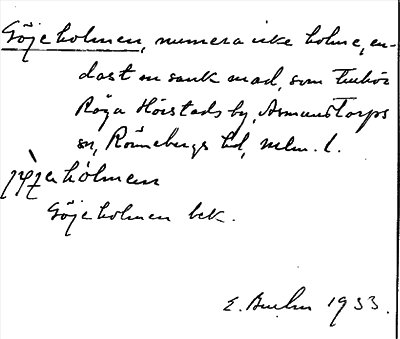 Göjeholmen, numera icke holme, en-
dast en sank mad, som tillhör
Röga Hörstads by, Asmundtorps
sn, Rönnebergs hd, Mlm. l.
holmen
Göjeholmen bek.
E. 1933.